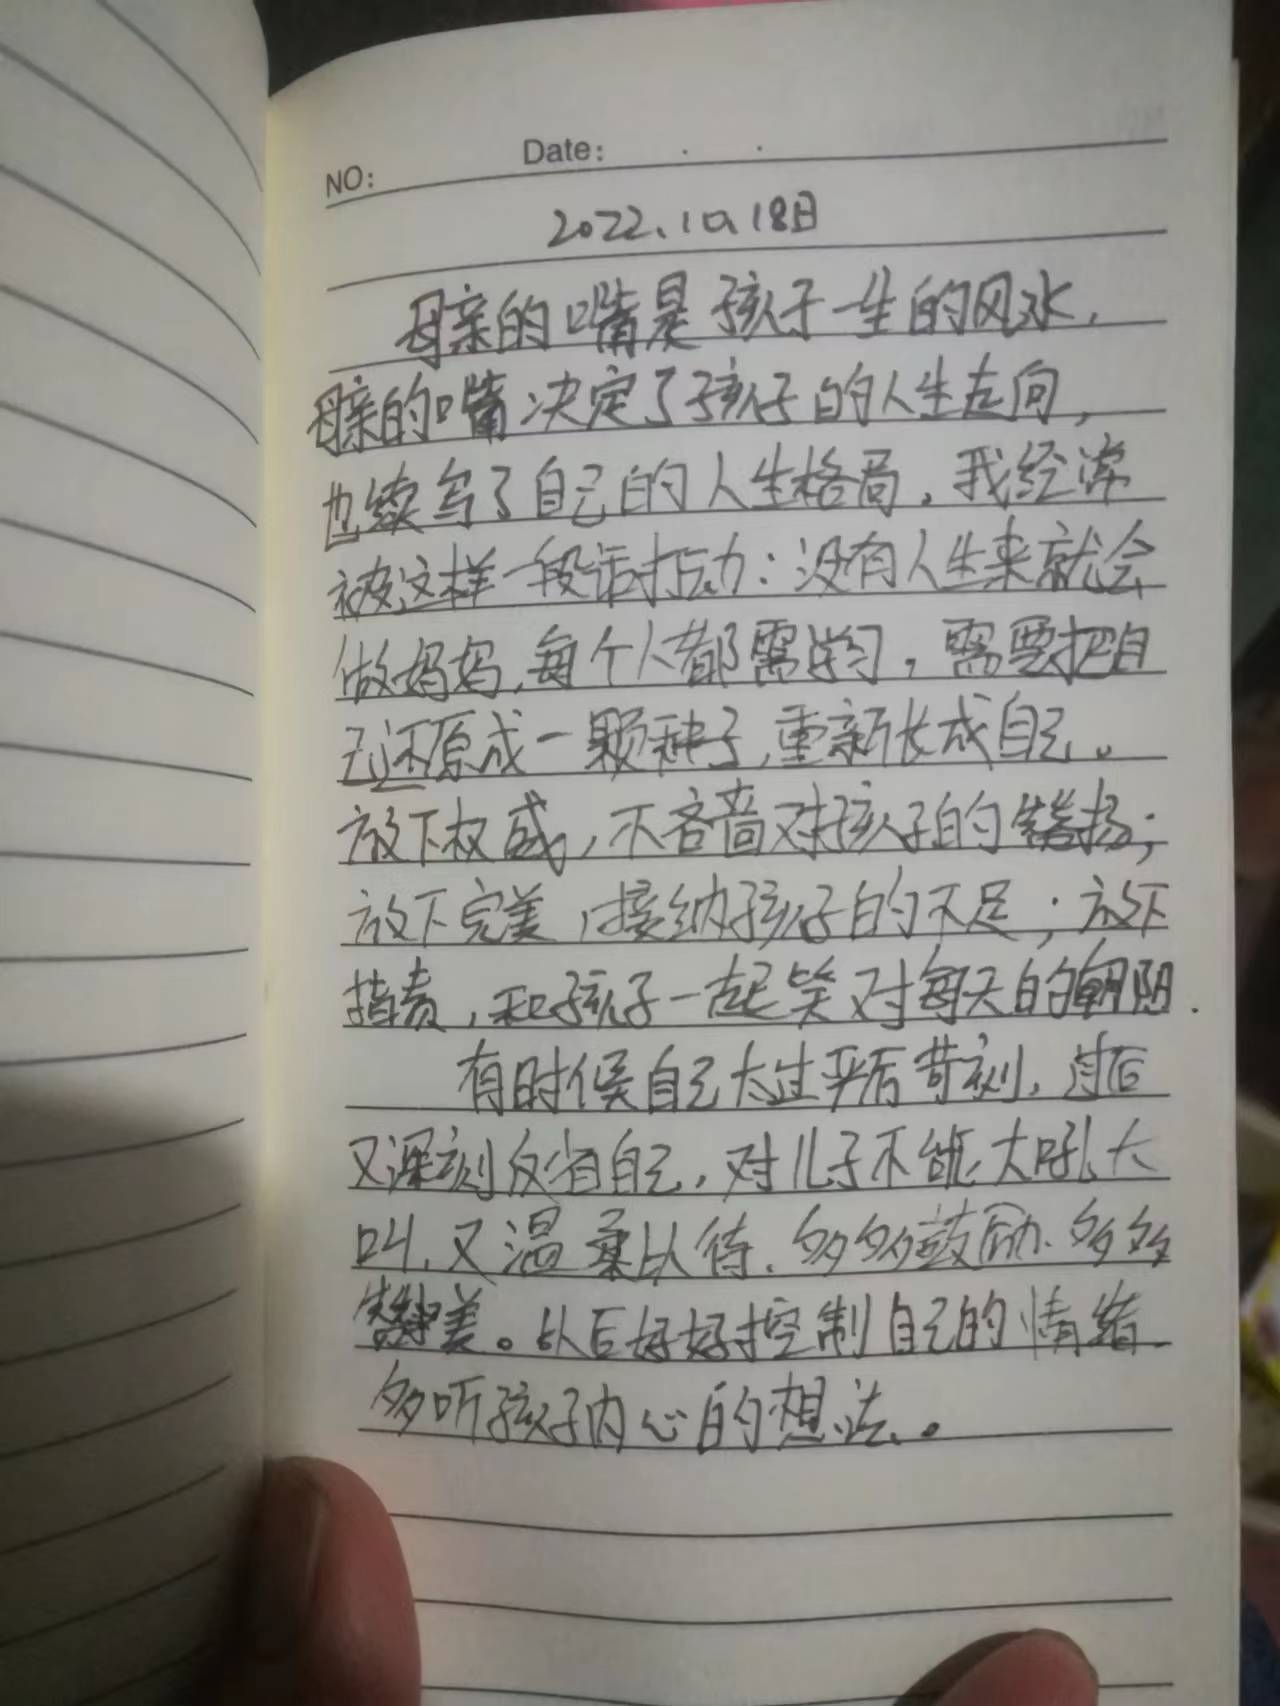 NO:
Date:
2022.10.18日
母亲的嘴是孩子一生的风水.
母亲的嘴决定了孩子的人生走向,
也续写了自己的人生格局,我经常
被这样一段话打动:没有人生来就会
做妈妈,每个人都需学习,需要把自
己还原成一颗种子,重新长成自己。
放下权威,不吝啬对孩子的赞扬;
放下完美,接纳孩子的不足;放下
指责,和孩子一起笑对每天的朝阳.
有时候自己太过严厉苛刻,过后
又深刻反省自己,对儿子不能大吼大
叫,又温柔以待,多多鼓励、多多
赞美。以后好好控制自己的情绪
多听孩子内心的想法。